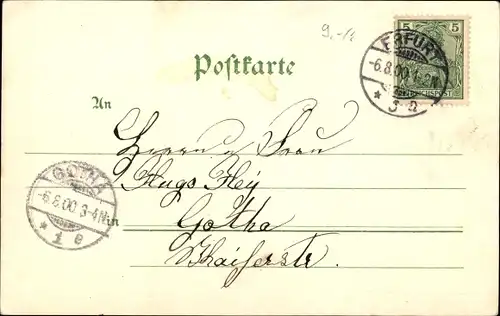 9.-
5 5
REICHSPOST
ERFURT
-6.8.00.1-2N
* 3 a
Postkarte
An
Herrn u Frau
Hugo Hey
Gotha
in
Kaiserstr.
GOTHA
-6.8.00.3-4N
* 1 e